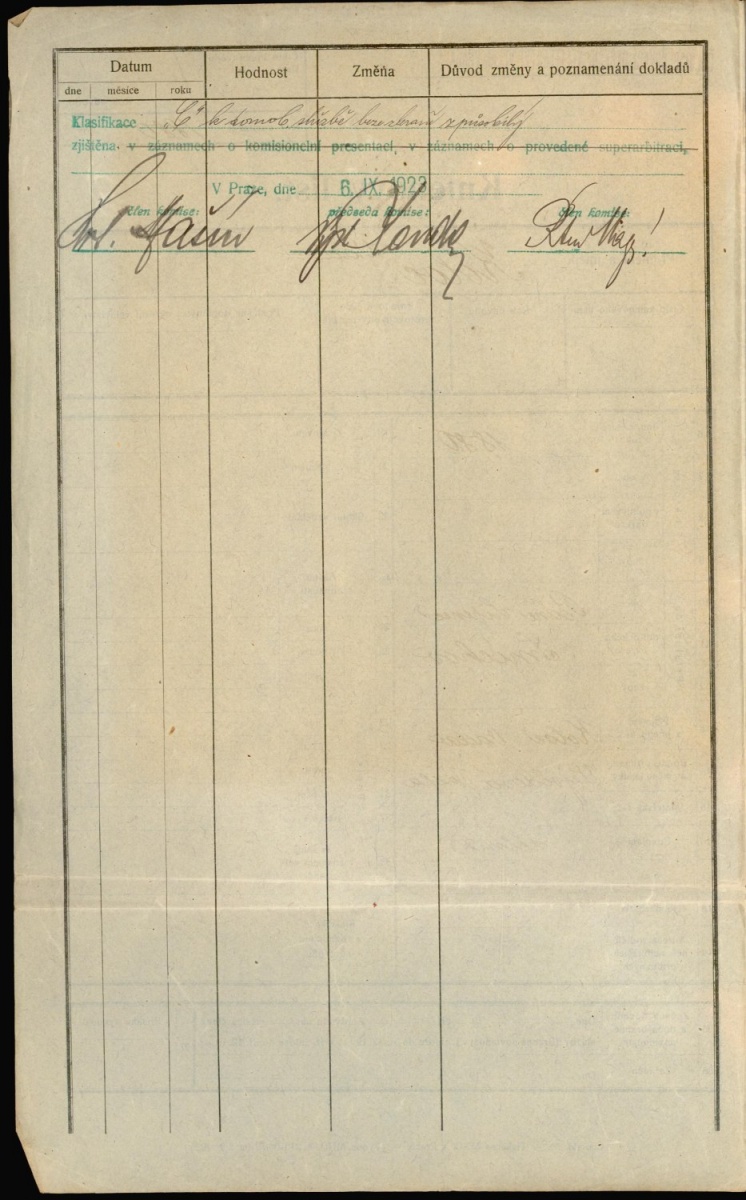 Datum
Hodnost
Změna
Důvod změny a poznamenání dokladů
dne měsíce roku
Klasifikace „C“ k domob. službě beze zbraně způsobilý
zjištěna v záznamech o komisionelní presentaci, v záznamech o provedené superarbitraci,
V Praze, dne 6. IX. 1923
člen komise: předseda komise: člen komise: